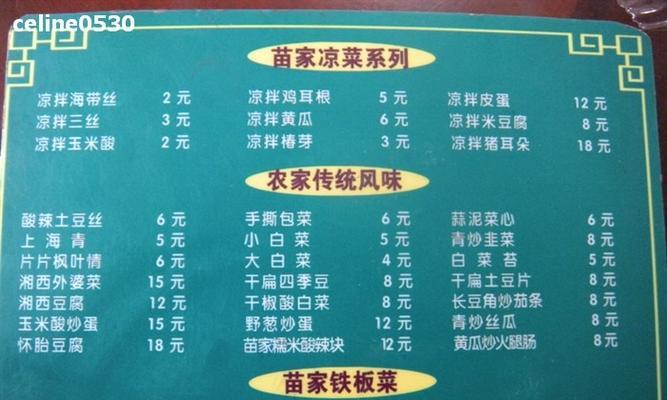 celine0530
苗家凉菜系列
凉拌海带丝 2 元 凉拌鸡耳根 5 元 凉拌皮蛋 12 元
凉拌三丝 3 元 凉拌黄瓜 6 元 凉拌米豆腐 8 元
凉拌玉米酸 2 元 凉拌椿芽 3 元 凉拌猪耳朵 18 元
农家传统风味
酸辣土豆丝 6 元 手撕包菜 6 元 蒜泥菜心 6 元
上海青 5 元 小白菜 5 元 青炒韭菜 8 元
片片枫叶情 6 元 大白菜 4 元 白菜苔 5 元
湘西外婆菜 15 元 干扁四季豆 8 元 干扁土豆片 8 元
湘西豆腐 12 元 干椒酸白菜 8 元 长豆角炒茄条 8 元
玉米酸炒蛋 15 元 野葱炒蛋 12 元 青炒丝瓜 8 元
怀胎豆腐 18 元 苗家糯米酸辣块 12 元 黄瓜炒火腿肠 8 元
苗家铁板菜